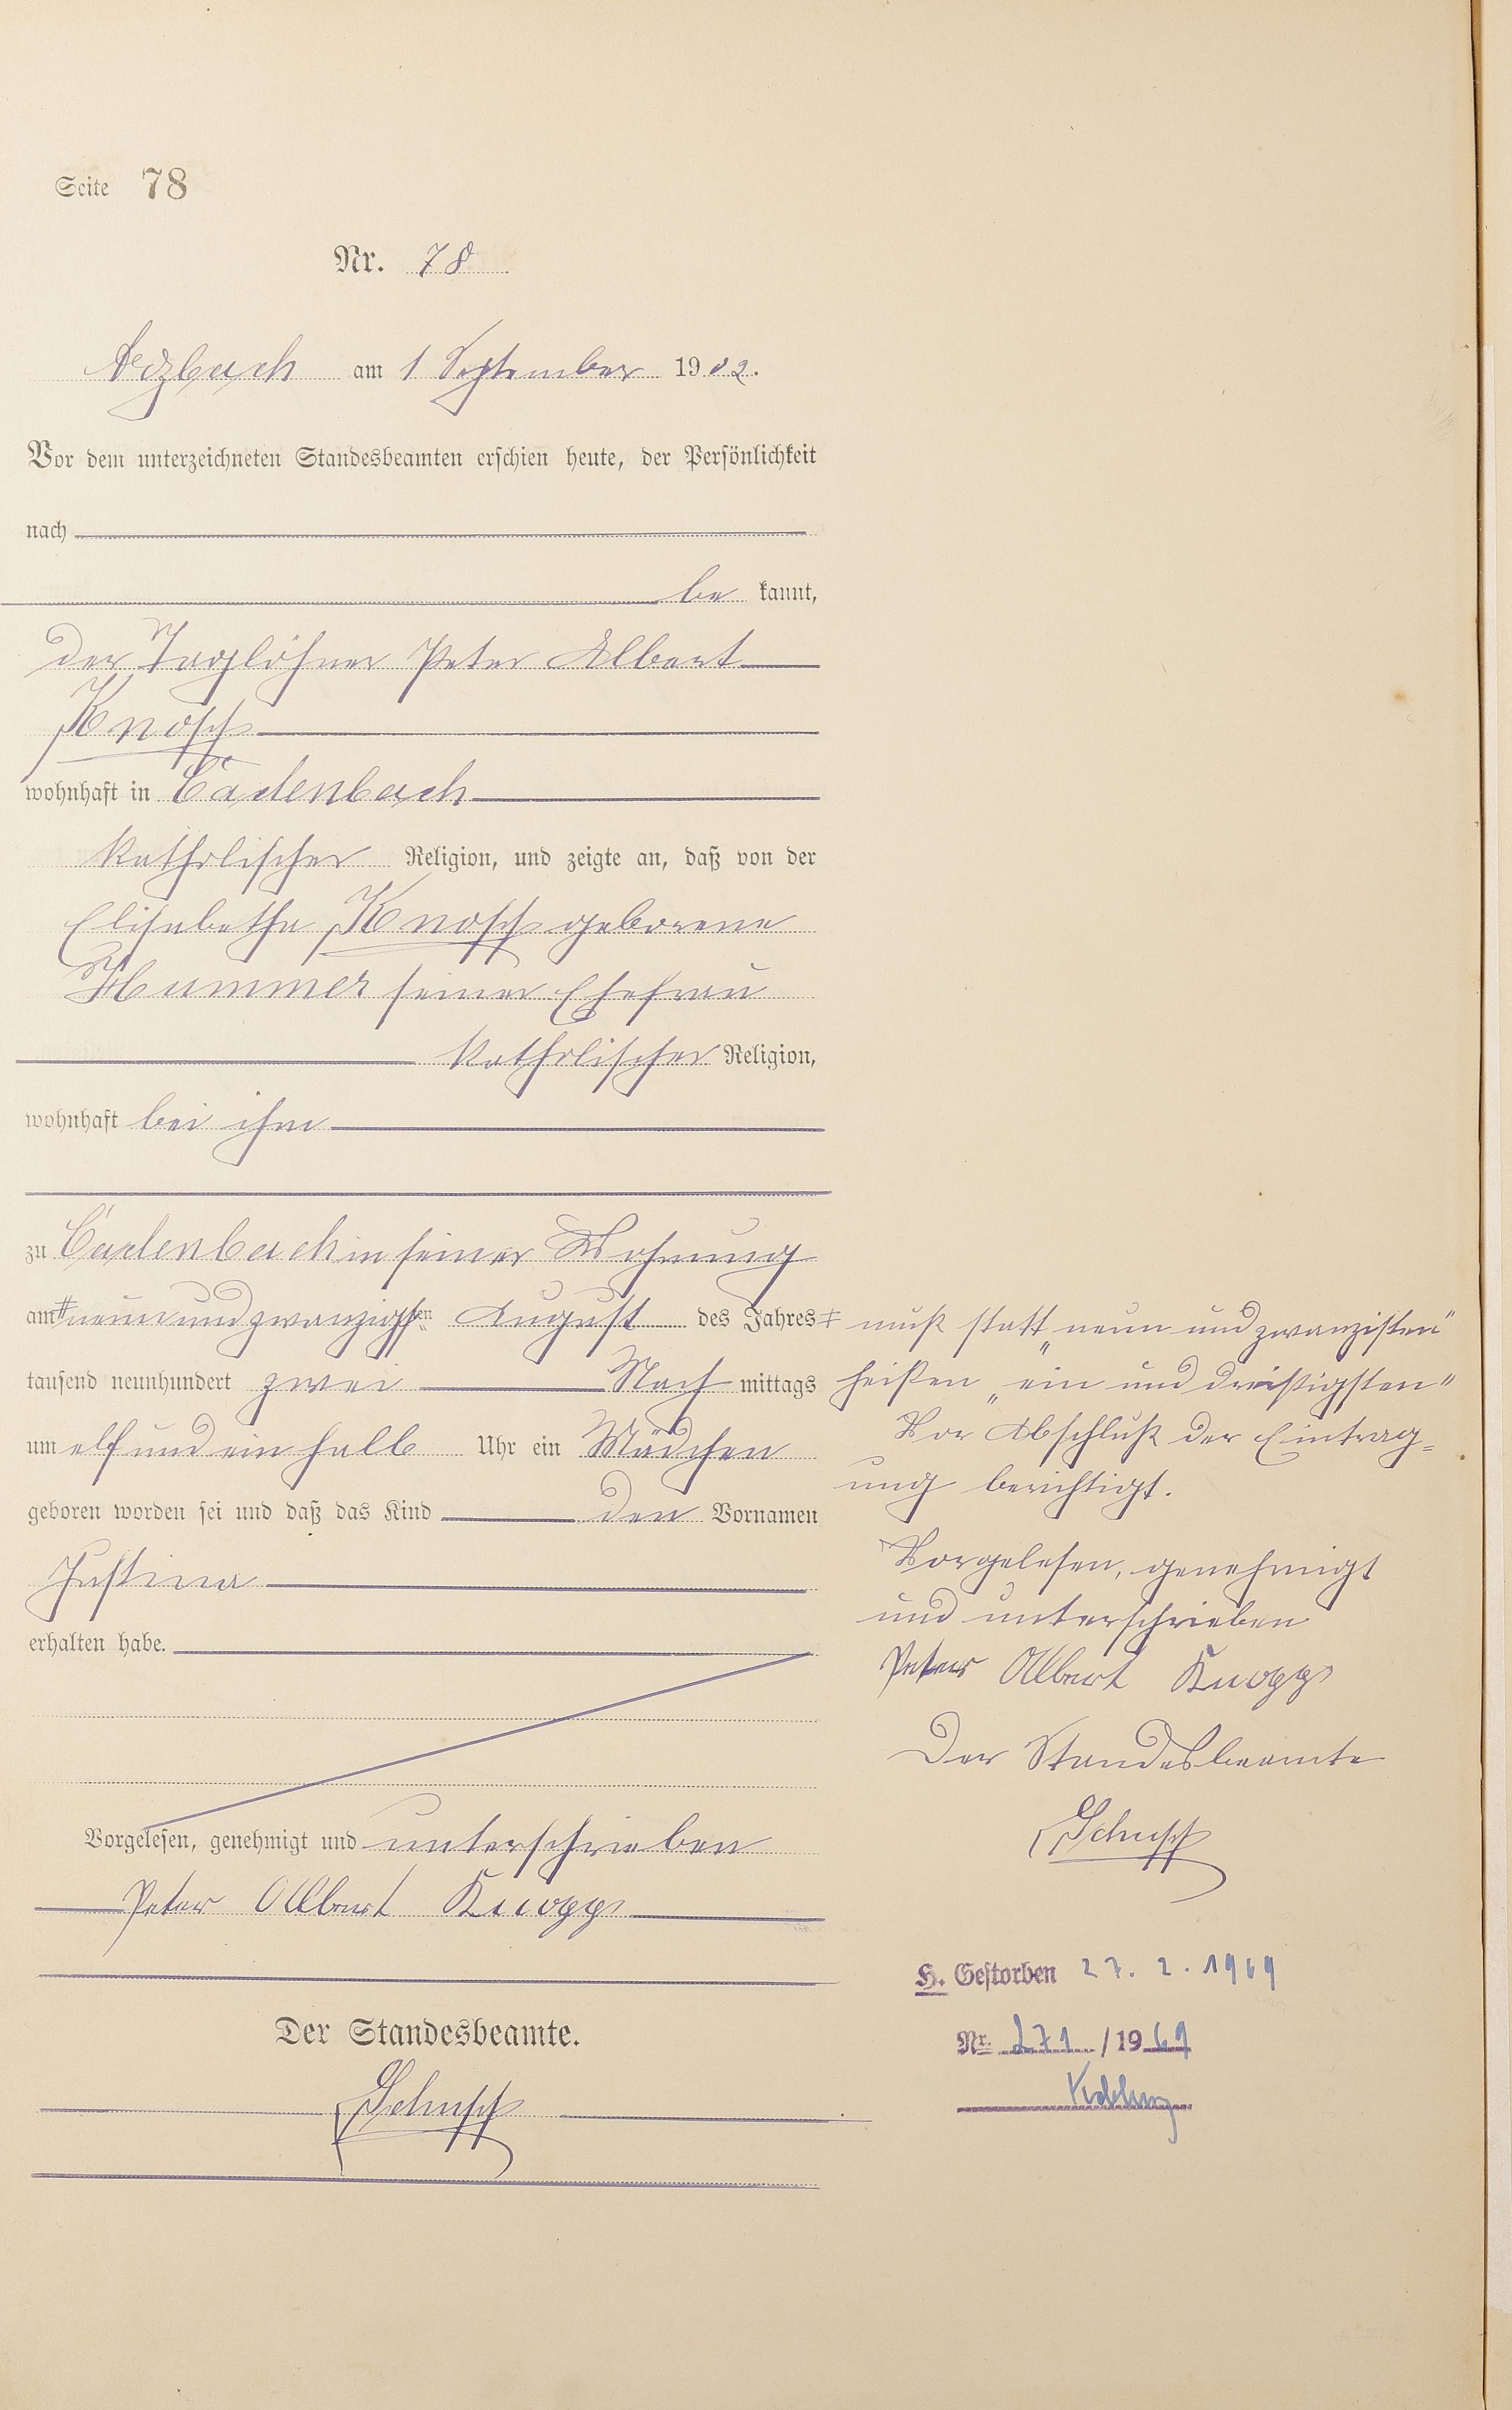 Seite 78
Nr. 78
Arzbach am 1 September 1902.
Vor dem unterzeichneten Standesbeamten erschien heute, der Persönlichkeit
nach
be kannt,
der Taglöhner Peter Albert
Knopp
wohnhaft in Cadenbach
katholischer Religion, und zeigte an, daß von der
Elisabetha Knopp geborene
Hummer seiner Ehefrau
katholischer Religion,
wohnhaft bei ihm
zu Cadenbach in seiner Wohnung
am ‡ neunundzwanzigsten August des Jahres
tausend neunhundert zwei Nach mittags
um elf und ein halb Uhr ein Mädchen
geboren worden sei und daß das Kind den Vornamen
Justina
erhalten habe.
Vorgelesen, genehmigt und unterschrieben
Peter Albert Knopp
Der Standesbeamte.
Schupp
‡ muß statt „neun und zwanzisten"
heißen „ein und dreißigsten"
Vor Abschluß der Eintrag=
ung berichtigt.
Vorgelesen, genehmigt
und unterschrieben
Peter Albert Knopp
Der Standesbeamte
Schupp
H. Gestorben 27. 2. 1969
Nr. 271 / 1969
Koblenz